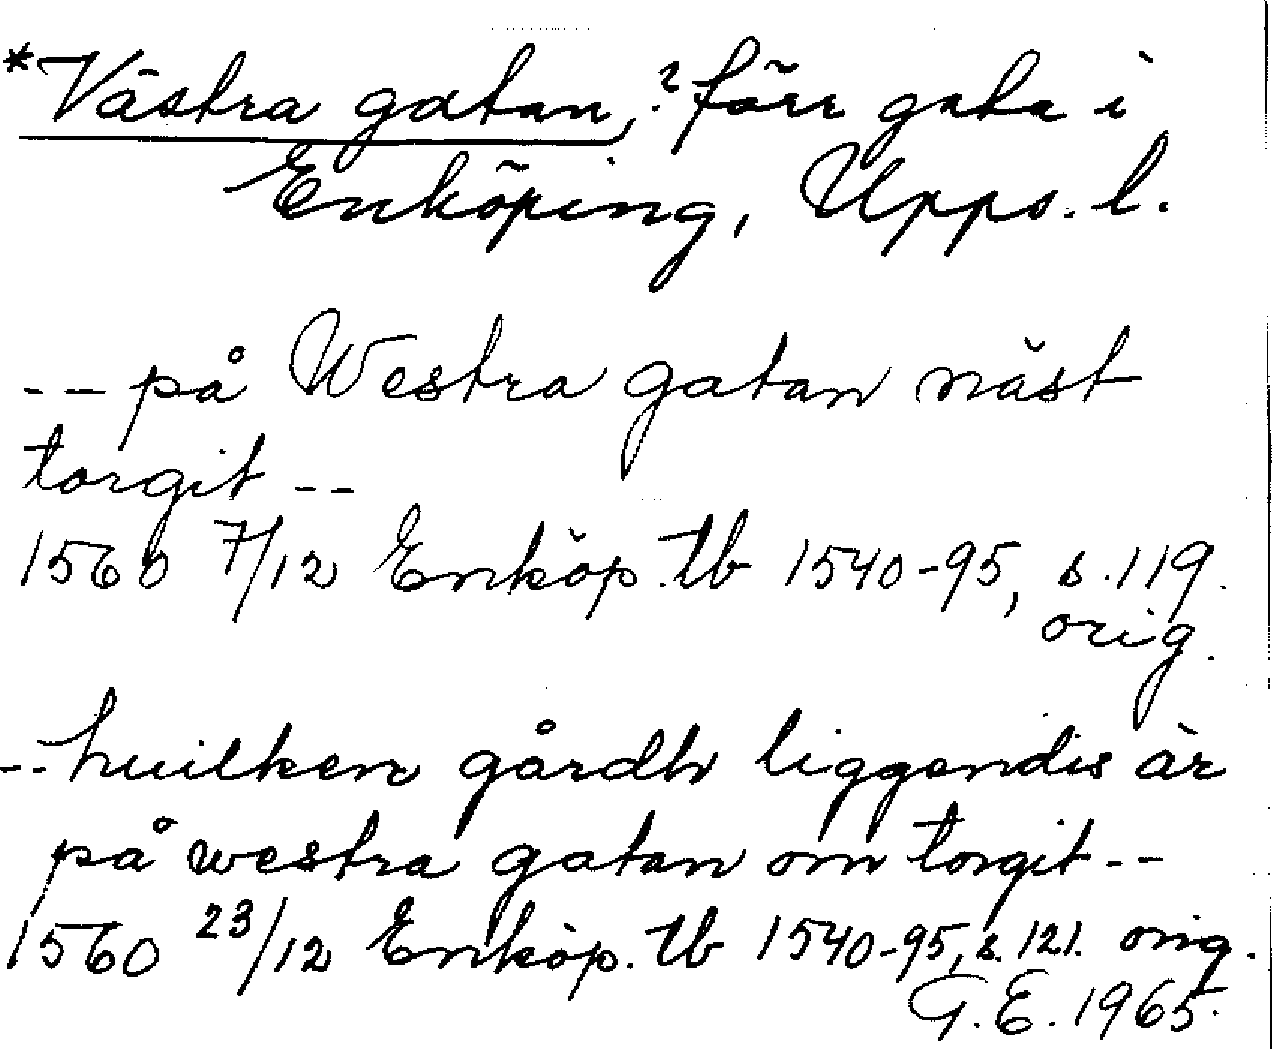 *Västra gatan, ? förr gata i
Enköping, Upps. l.
-- på Westra gatan näst
torgit --
1560 7/12 Enköp. tb 1540-95, s. 119.
orig.
-- huilken gårdh liggendis är
på westra gatan om torgit --
1560 23/12 Enköp. tb 1540-95, s. 121. orig.
G. E. 1965.